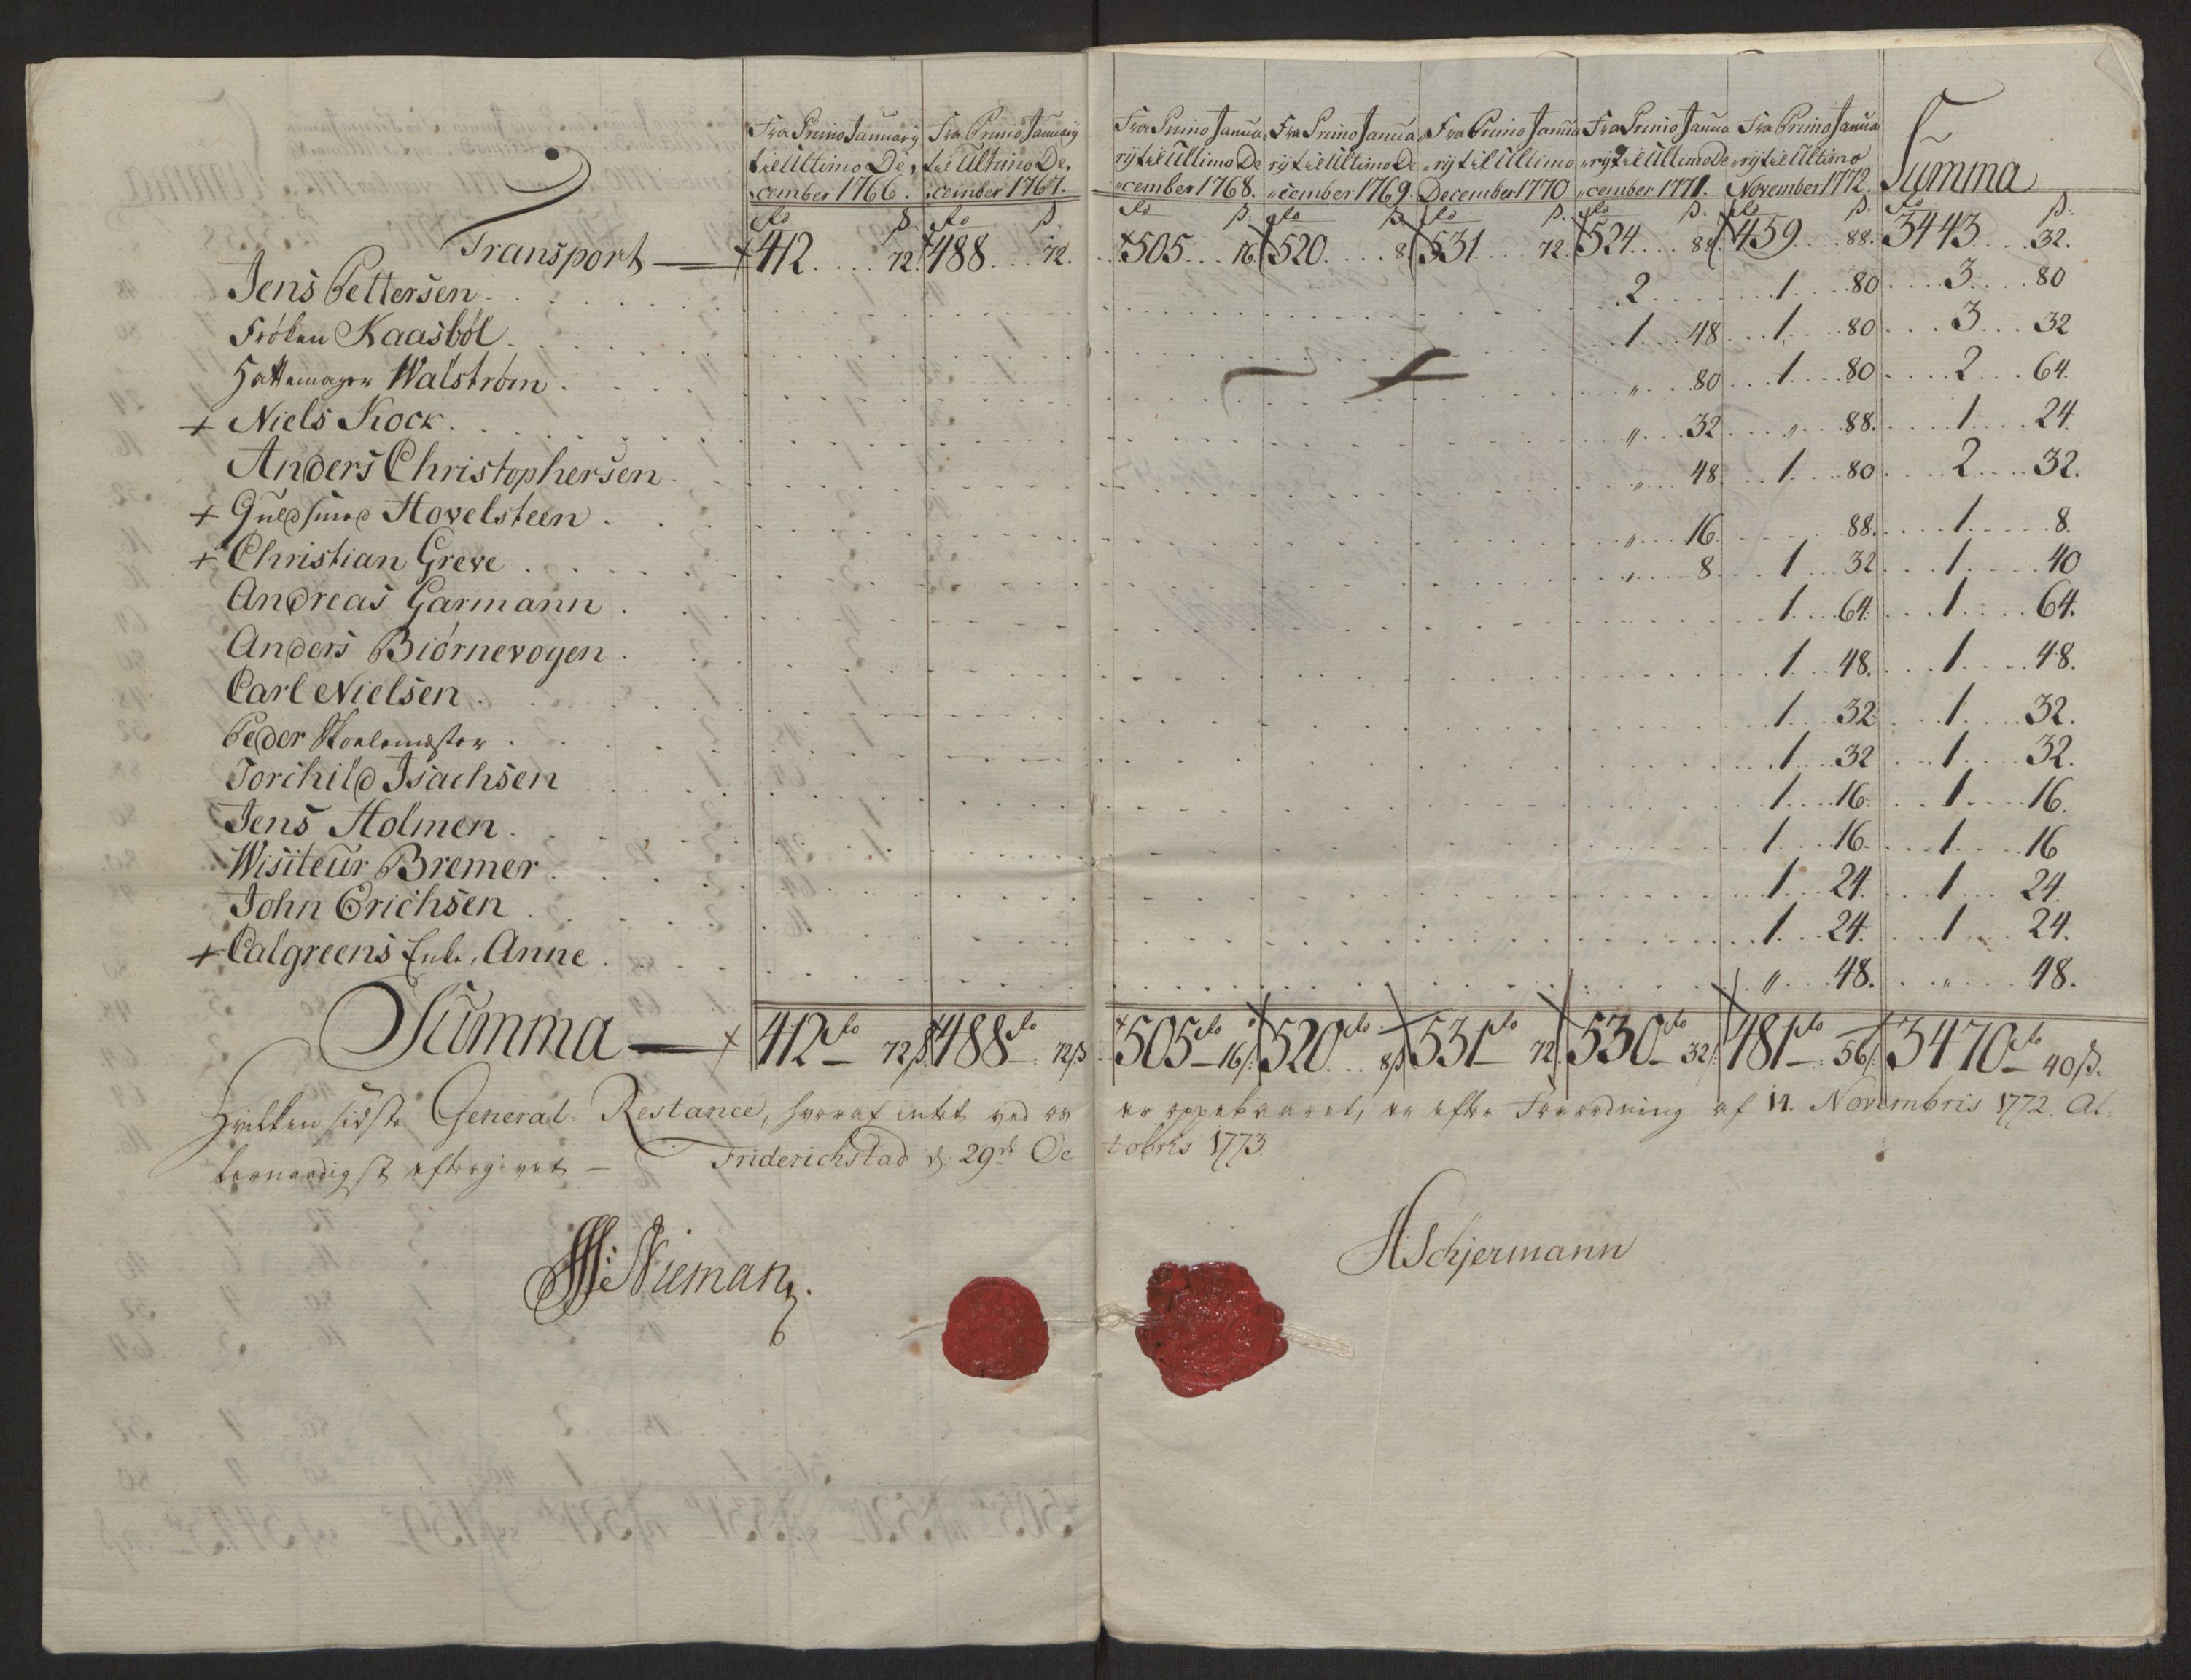 Fra Primo Januarij til Ultimo De, cember 1766. Fra Primo Januarij til Ultimo De, cember 1767. Fra Primo Janua, rij til Ultimo De „cember 1768. Fra Primo Janua, rij til Ultimo De „cember 1769. Fra Primo Janua „rij til Ultimo December 1770 Fra Primo Janua „rij til Ultimo De „cember 1771. Fra Primo Janua „rij til Ultimo November 1772. Summa
Transport 412 72. 488 72. 505 16. 520 8. 531 72. 524 88. 459 88. 3443 32.
Jens Pettersen 2 1 80 3 80
Frøken Kaasbøl 1 48 1 80 3 32
Hattemager Walstrøm „ 80 1 80 2 64.
+ Niels Kock „ 32 „ 88. 1 24.
Anders Christophersen „ 48 1 80 2 32.
+ Guldsmed Hovelsteen „ 16 88. 1 8.
+ Christian Greve „ 8 1 32 1 40
Andreas Garmann 1 64. 1 64.
Anders Biørnevogen 1 48. 1 48.
Carl Nielsen 1 32 1 32.
Peder Skolemester 1 32 1 32.
Torchild Isachsen 1 16. 1 16.
Jens Holmen 1 16. 1 16
Wisiteur Bremer 1 24. 1 24.
John Erichsen 1 24. 1 24.
+ Calgreens Enke, Anne „ 48. „ 48.
Summa 412 72 488 72 505 16 520 8 531 72 530 32 481 56 3470 40
Hvilken sidste General Restance, hvoraf intet ved os er oppebaaret, er efter Forordning af 14. Novembris 1772. Al„
lernaadigst eftergivet – Friderichstad d. 29de Octobris 1773.
Nieman
HSchjermann